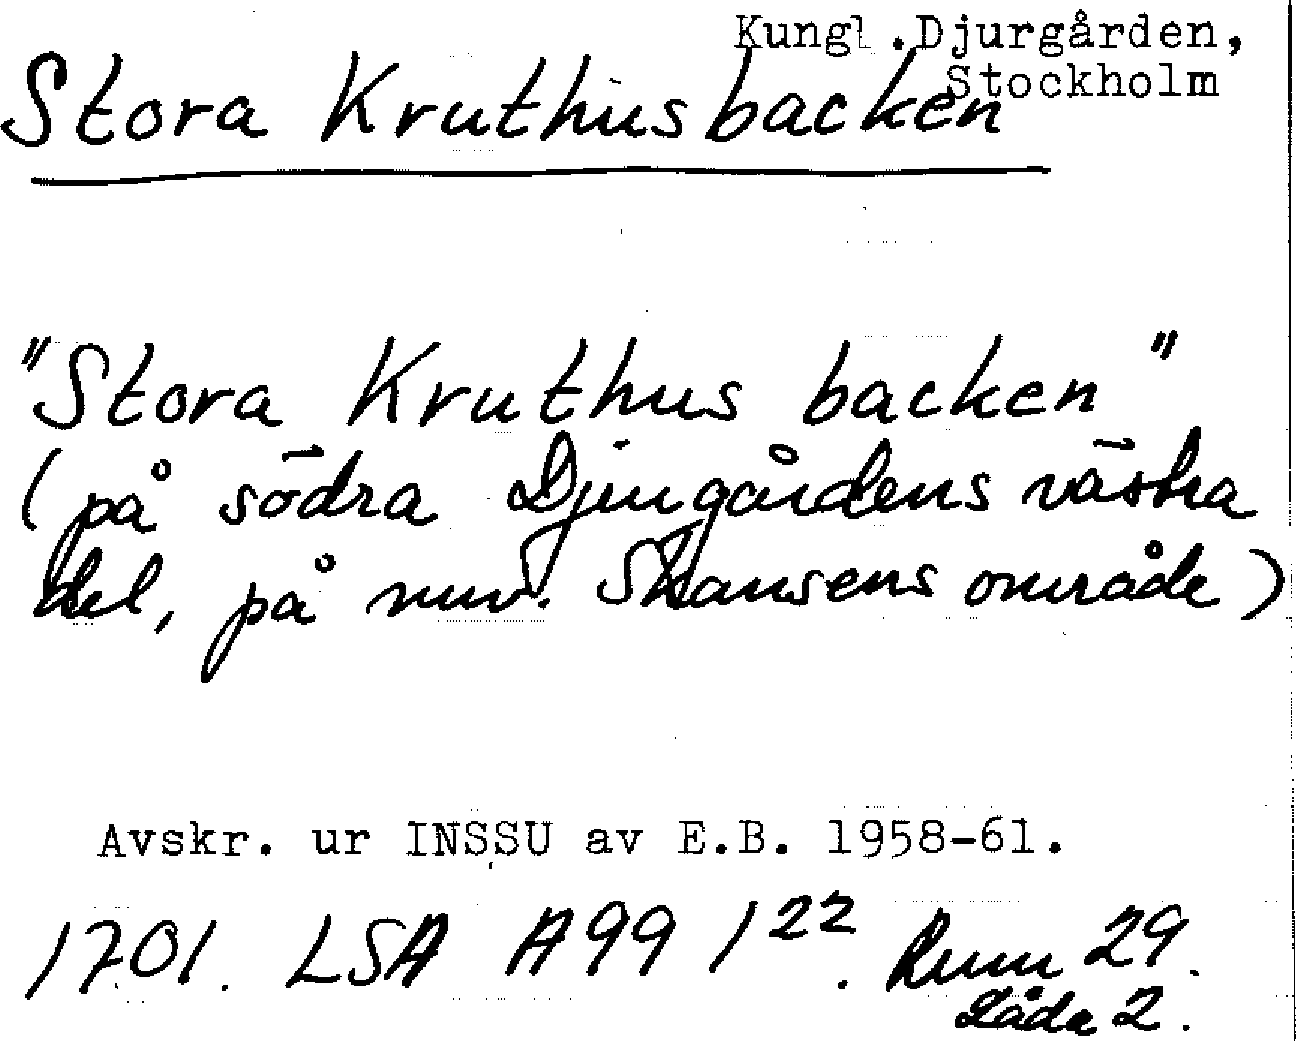 Kungl.Djurgården,
Stockholm
Stora Kruthusbacken
"Stora Kruthus backen"
(på södra Djurgårdens västra
del, på nuv. Skansens område)
Avskr. ur INSSU av E.B. 1958-61.
1701. LSA A99 1²². Rum 29.
Låda 2.